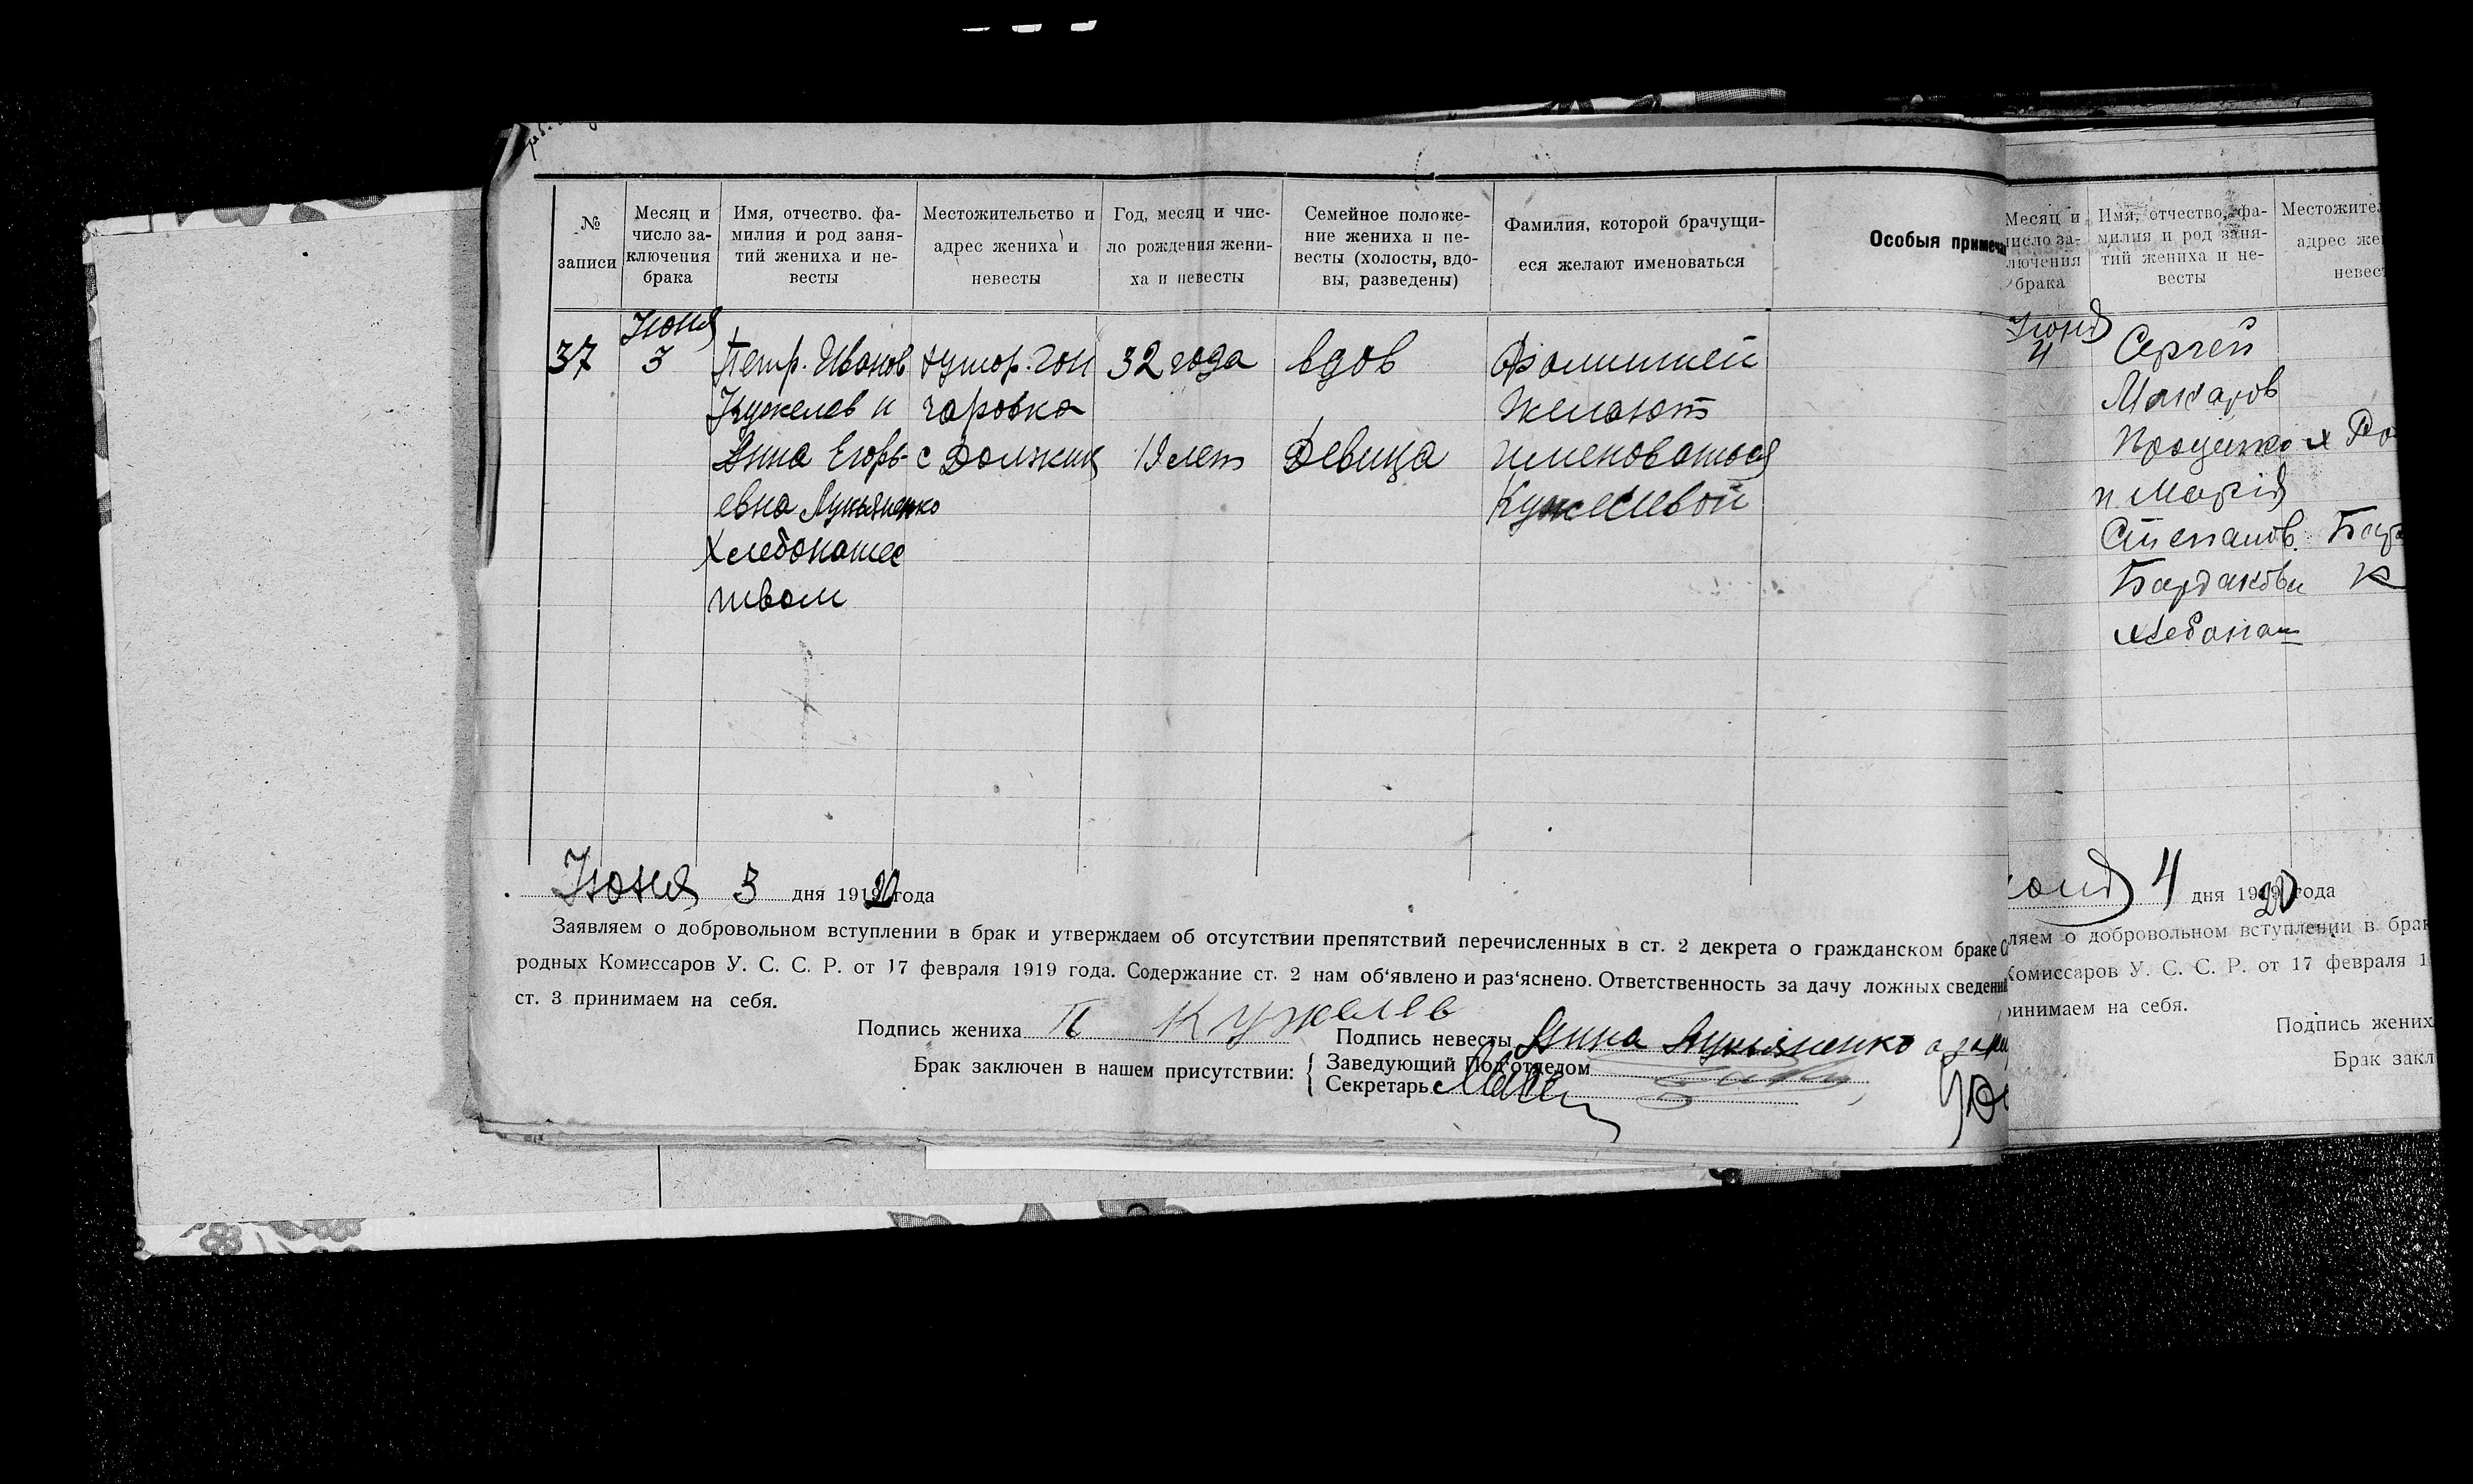 № записи
Месяц и число за-
ключения брака
Имя, отчество. фа-
милия и род заня-
тий жениха и не-
весты
Местожительство и
адрес жениха и
невесты
Год, месяц и чис-
ло рождения жени-
ха и невесты
Семейное положе-
ние жениха и не-
весты (холосты, вдо-
вы, разведены)
Фамилия, которой брачущи-
еся желают именоваться
Особыя примеча
37
Июня
3
Петр. Иванов
Кужелев и
Анна Егорь-
евна Лукьяненко
хлебопашес
твом
хутор. Гон
чаровка
с Должик
32 года
19 лет
вдов
Девица
Фамилией
желают
именоваться
Кужелевой
Июня 3 дня 1920 года
Заявляем о добровольном вступлении в брак и утверждаем об отсутствии препятствий перечисленных в ст. 2 декрета о гражданском браке С
родных Комиссаров У. С. С. Р. от 17 февраля 1919 года. Содержание ст. 2 нам об‘явлено и раз‘яснено. Ответственность за дачу ложных сведени
ст. 3 принимаем на себя.
Подпись жениха П Кужелев
Подпись невесты Анна Лукьяненко а за
Брак заключен в нашем присутствии:
Заведующий Под‘отделом
Секретарь
Месяц и
число за-
лючения
брака
Имя, отчество, фа-
милия и род заня-
тий жениха и не-
весты
Местожител
адрес же
невест
Июня
4
Сергей
Макаров
Проценко х Ро
и Мария
Степанов. Бар
Бардакова К
хлебопаш
4 дня 1920 года
ляем о добровольном вступлении в брак
Комиссаров У. С. С. Р. от 17 февраля 1
ринимаем на себя.
Подпись жених
Брак закл